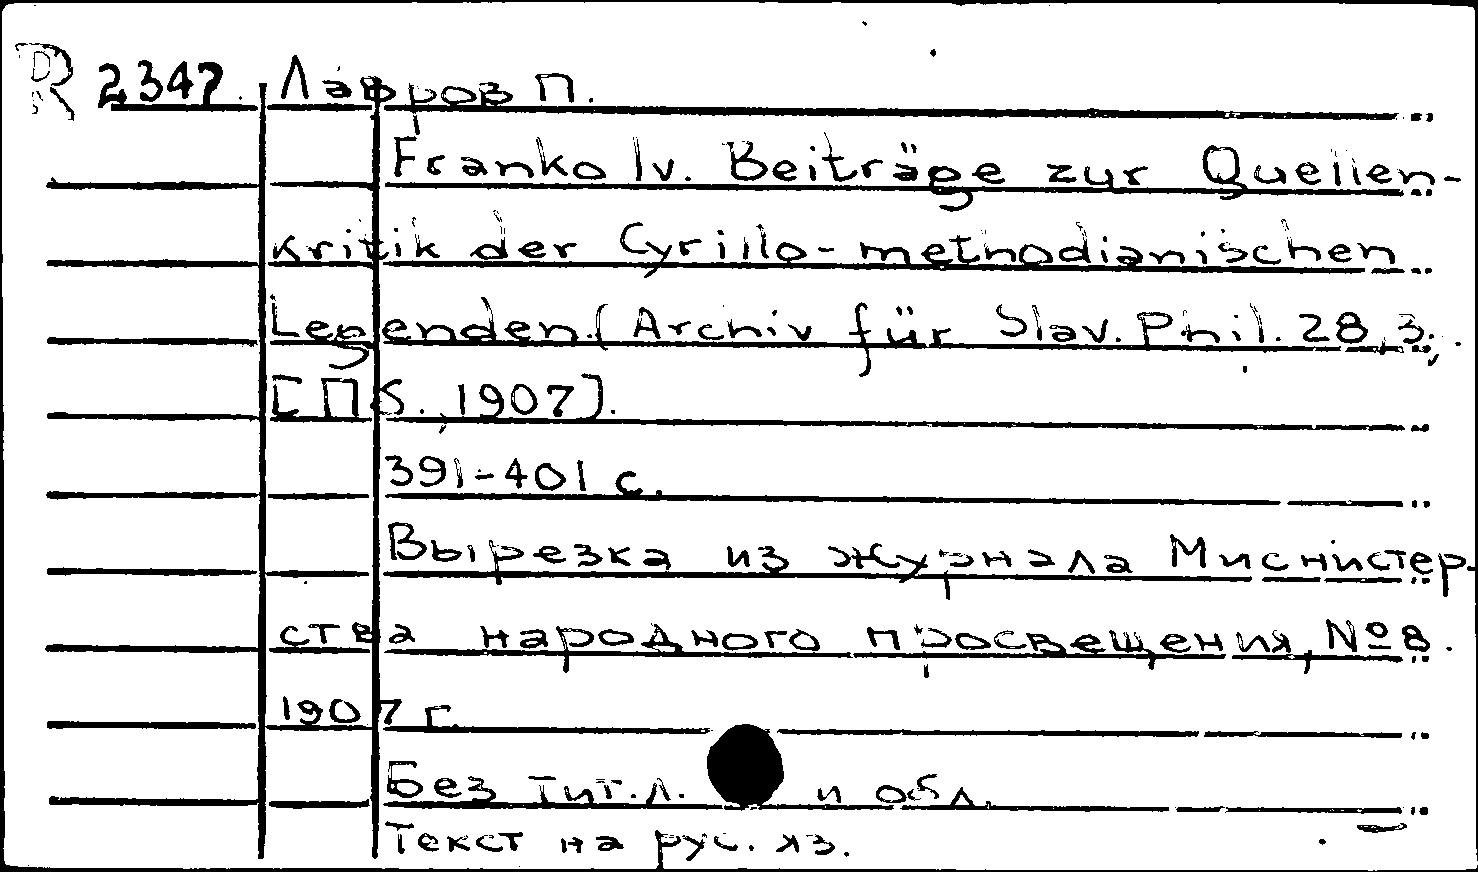 R 2347 Лавров П.
Franko Iv. Beiträge zur Quellen-
kritik der Cyrillo-methodianischen
Legenden (Archiv für Slav. Phil. 28, 3;
[Пб., 1907].
391-401 с.
Вырезка из журнала Миснистер-
ства народного просвещения, №8.
1907 г.
Без тит.л. и обл.
Текст на рус. яз.